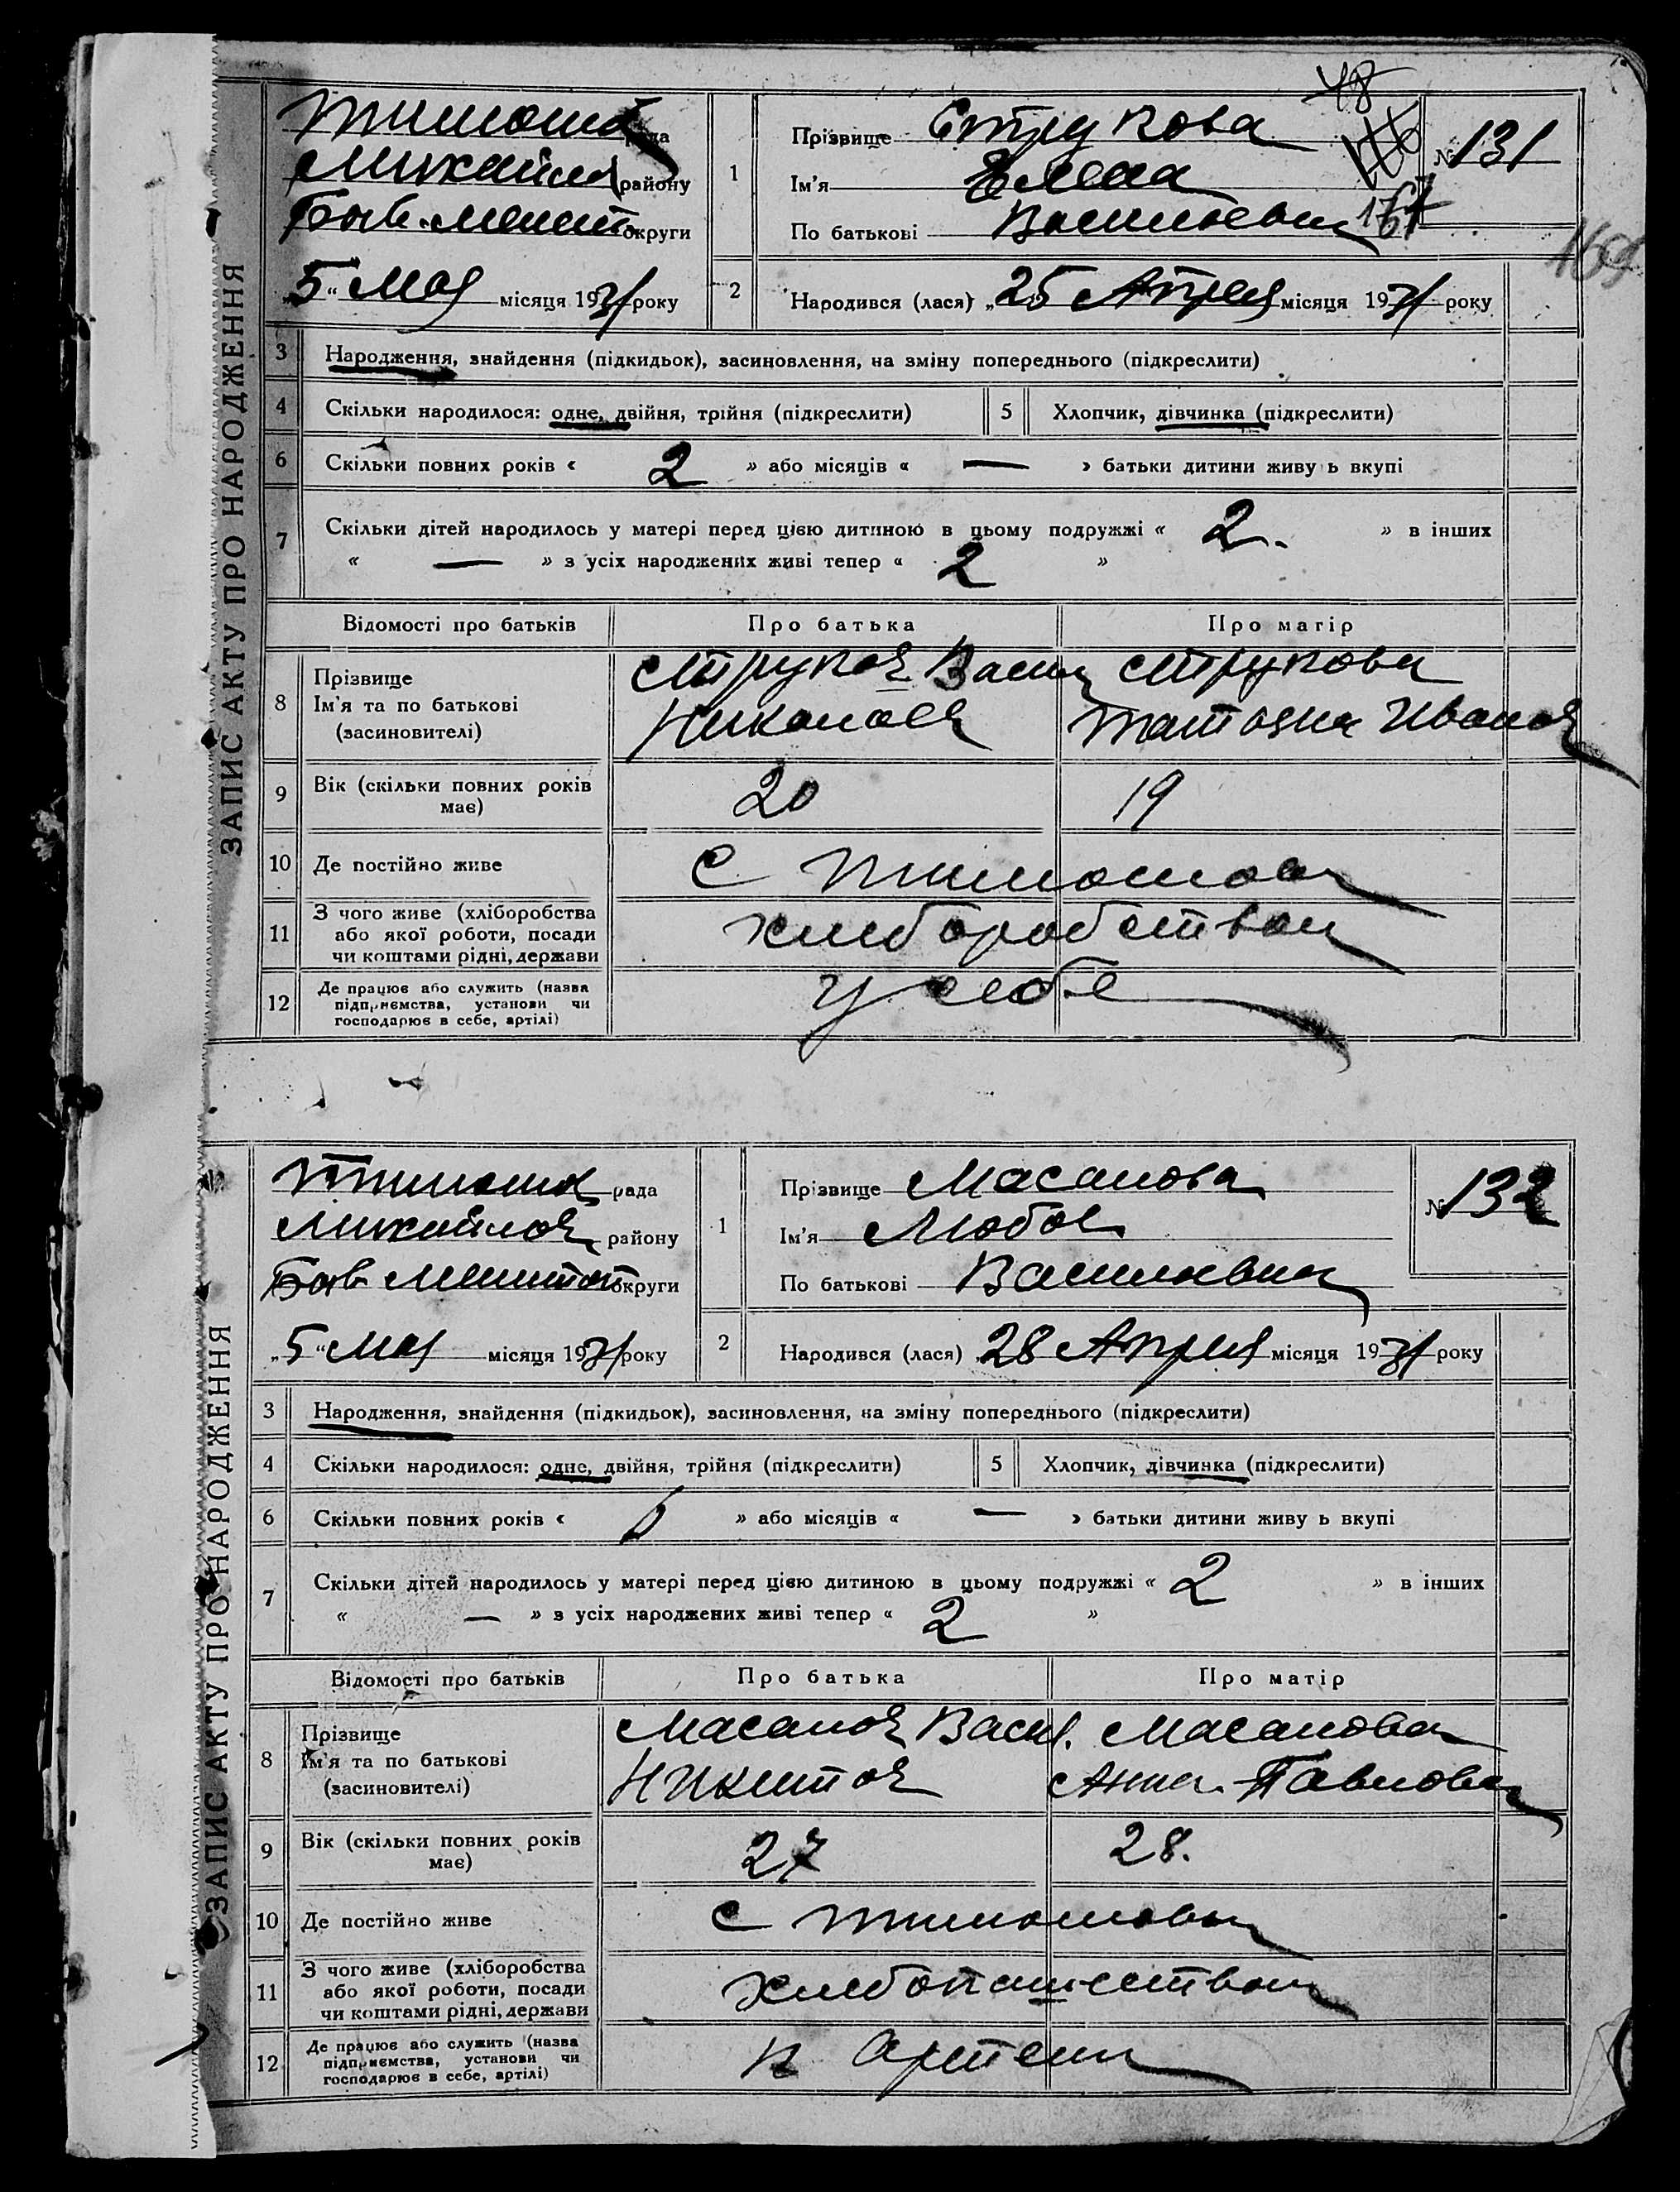 48
ЗАПИС АКТУ ПРО НАРОДЖЕННЯ
Тимоша рада
Михайлов району
Быв. мелит. округи
„5“ мая місяця 1931 року
1
Прізвище Струкова
Ім'я Елена
По батькові Васильевна
№ 131
167
169
2
Народився (лася) „25 Апреля місяця 1931 року
3 Народження, знайдення (підкидьок), засиновлення, на зміну попереднього (підкреслити)
4 Скільки народилося: одне, двійня, трійня (підкреслити) 5 Хлопчик, дівчинка (підкреслити)
6 Скільки повних років « 2 » або місяців « — » батьки дитини живуь вкупі
7 Скільки дітей народилось у матері перед цією дитиною в цьому подружжі « 2. » в інших
« — » з усіх народжених живі тепер « 2 »
Відомості про батьків Про батька Про матір
8 Прізвище Ім'я та по батькові (засиновителі)
Струков Васил Струкова
Николаев Татьяна Иванов
9 Вік (скільки повних років має) 20 19
10 Де постійно живе с Тимошовка
11 З чого живе (хліборобства або якої роботи, посади чи коштами рідні, держави хлеборобством
12 Де працює або служить (назва підприємства, установи чи господарює в себе, артілі) у себе
ЗАПИС АКТУ ПРО НАРОДЖЕННЯ
Тимоша рада
Михайлов району
Быв мелитоп округи
„5“ мая місяця 1931 року
1
Прізвище Масанова
Ім'я Любов
По батькові Васильевна
№ 132
2
Народився (лася) „28 Апреля місяця 1931 року
3 Народження, знайдення (підкидьок), засиновлення, на зміну попереднього (підкреслити)
4 Скільки народилося: одне, двійня, трійня (підкреслити) 5 Хлопчик, дівчинка (підкреслити)
6 Скільки повних років « » або місяців « — » батьки дитини живу ь вкупі
7 Скільки дітей народилось у матері перед цією дитиною в цьому подружжі « 2 » в інших
« — » з усіх народжених живі тепер « 2 »
Відомості про батьків Про батька Про матір
8 Прізвище Ім'я та по батькові (засиновителі)
Масанов Васил. Масанова
Никитов Анна Павловна
9 Вік (скільки повних років має) 27 28.
10 Де постійно живе с Тимошовка
11 З чого живе (хліборобства або якої роботи, посади чи коштами рідні, держави хлебопашеством
12 Де працює або служить (назва підприємства, установи чи господарює в себе, артілі) в Артели